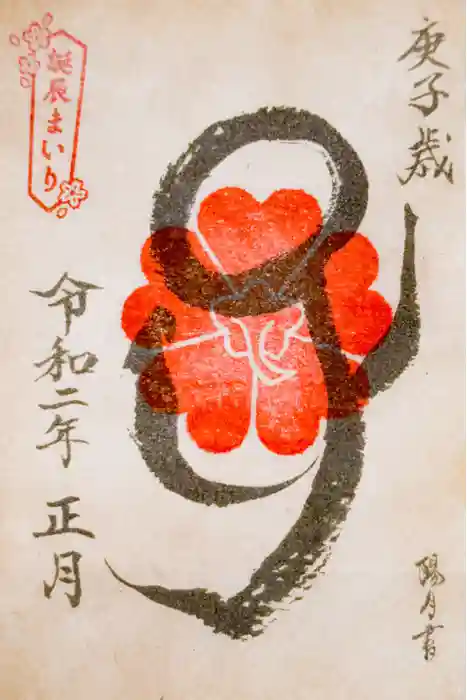 庚子歳
誕辰まいり
令和二年 正月
陽月書